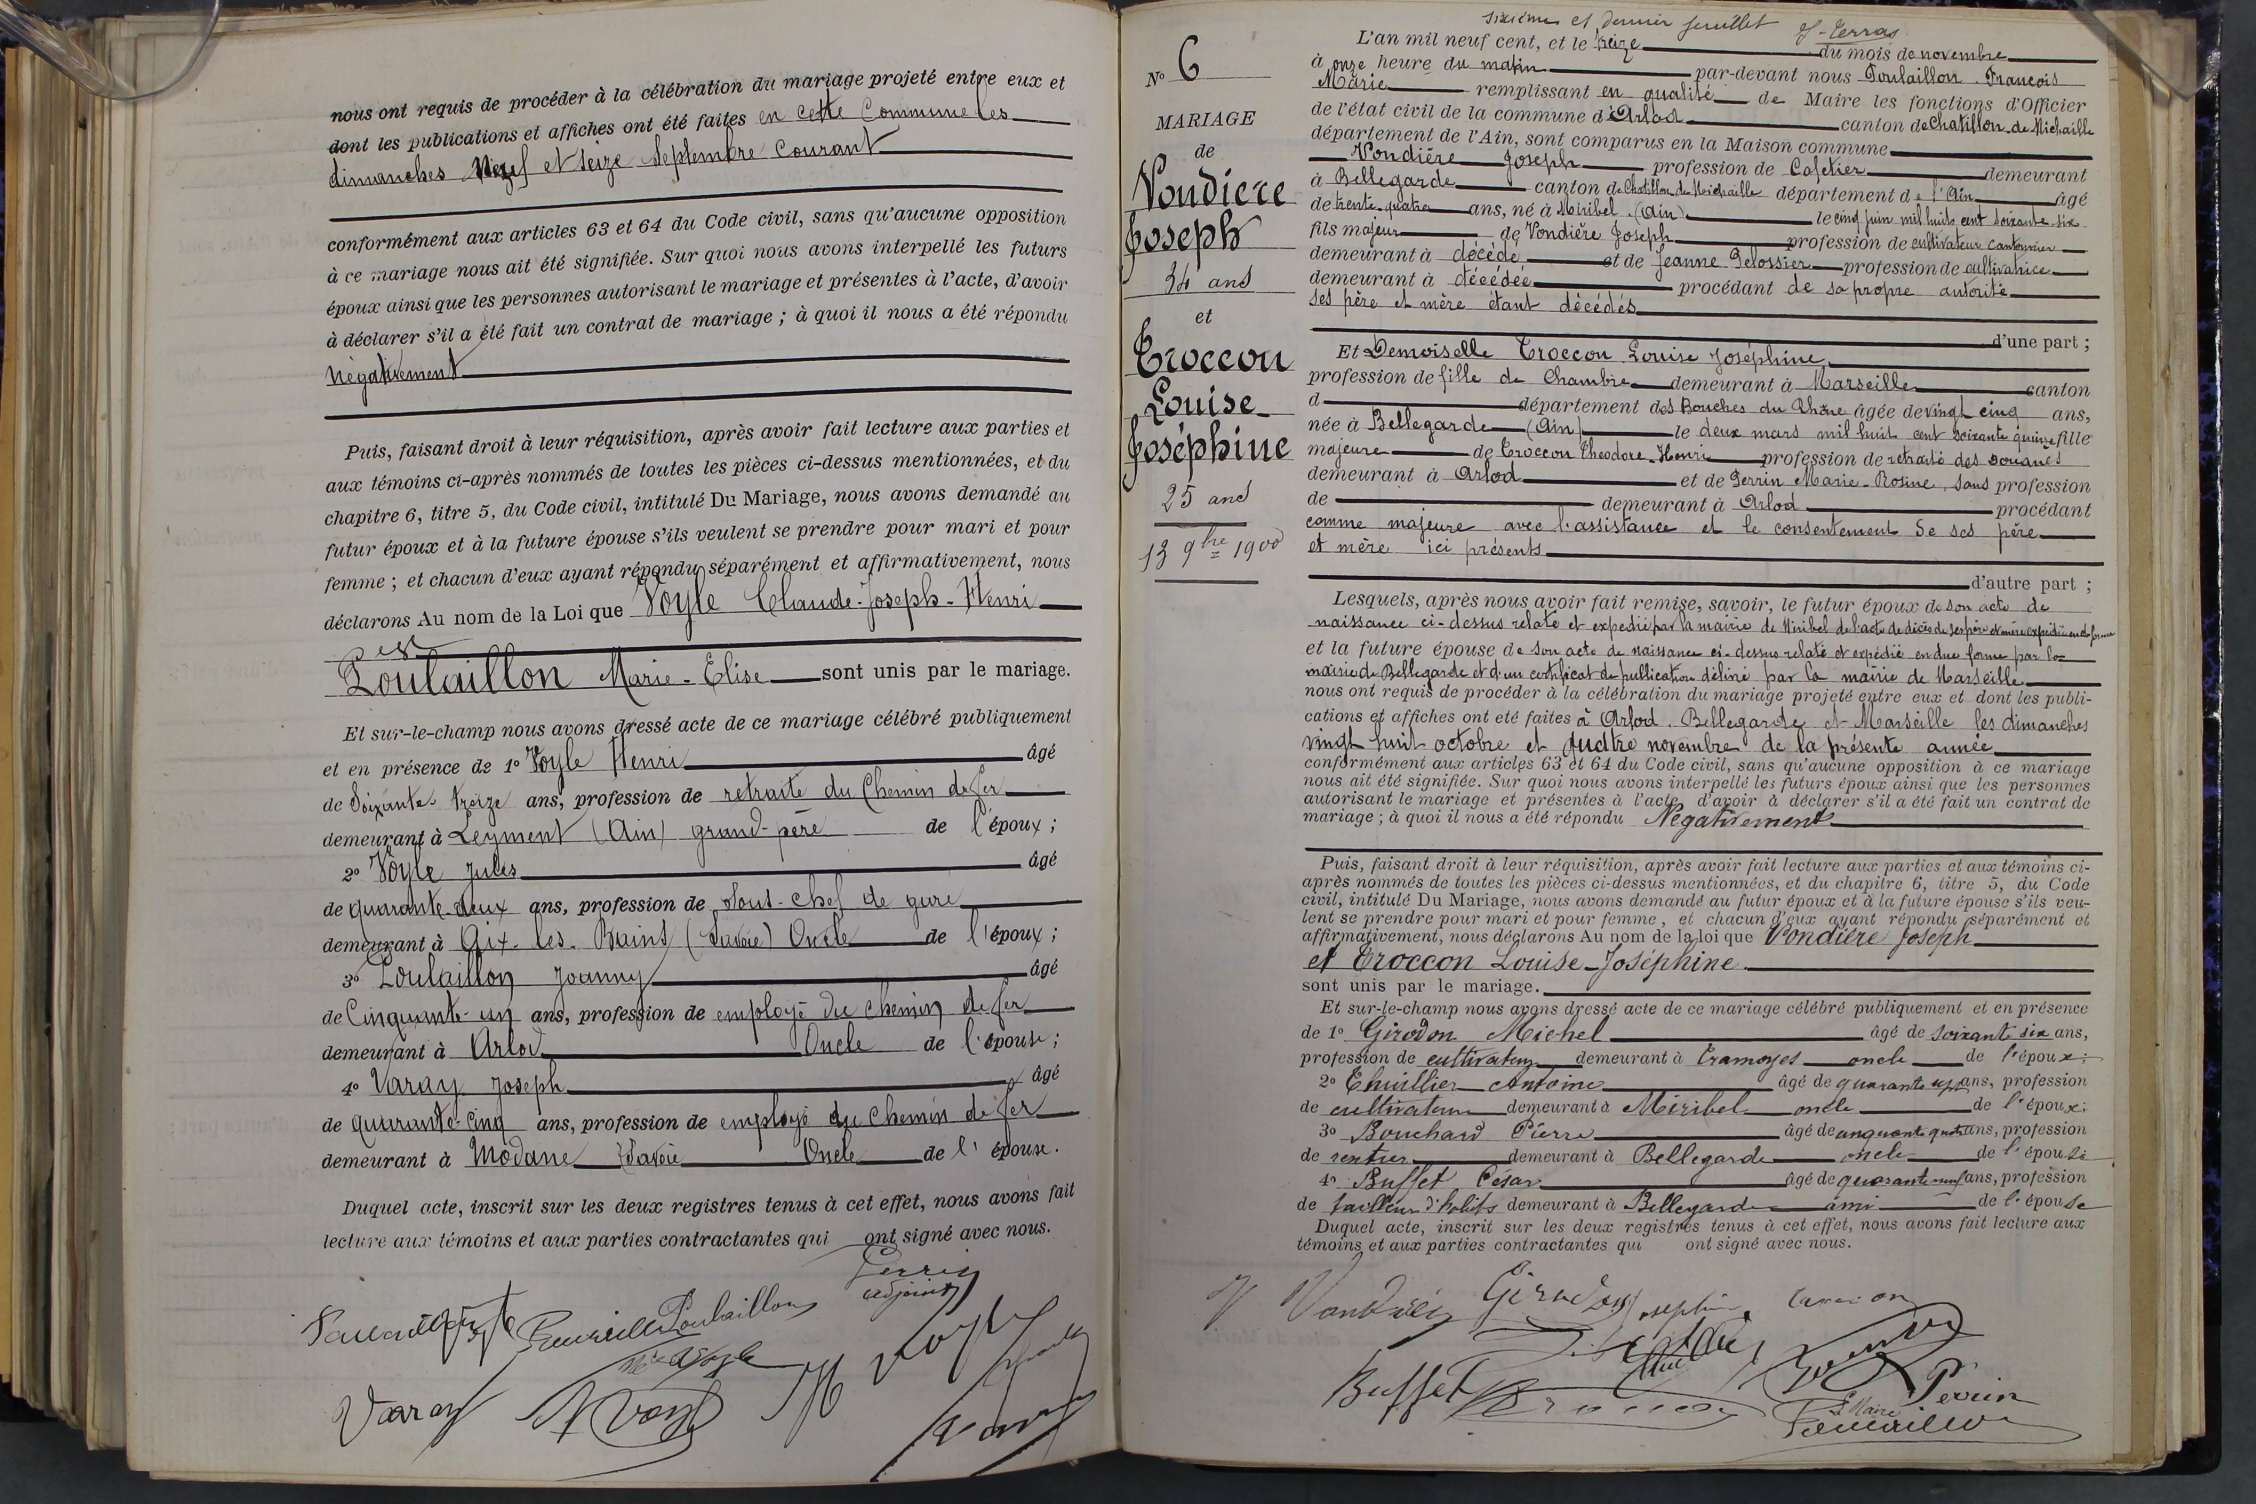 nous ont requis de procéder à la célébration du mariage projeté entre eux et
dont les publications et affiches ont été faites en cette Commune les
dimanches Neuf et seize Septembre Courant
conformément aux articles 63 et 64 du Code civil, sans qu'aucune opposition
à ce mariage nous ait été signifiée. Sur quoi nous avons interpellé les futurs
époux ainsi que les personnes autorisant le mariage et présentes à l'acte, d'avoir
à déclarer s'il a été fait un contrat de mariage ; à quoi il nous a été répondu
Négativement
Puis, faisant droit à leur réquisition, après avoir fait lecture aux parties et
aux témoins ci-après nommés de toutes les pièces ci-dessus mentionnées, et du
chapitre 6, titre 5, du Code civil, intitulé Du Mariage, nous avons demandé au
futur époux et à la future épouse s'ils veulent se prendre pour mari et pour
femme ; et chacun d'eux ayant répondu séparément et affirmativement, nous
déclarons Au nom de la Loi que Voyle Claude-Joseph-Henri
et
Poulaillon Marie-Elise sont unis par le mariage.
Et sur-le-champ nous avons dressé acte de ce mariage célébré publiquement
et en présence de 1o Voyle Henri âgé
de Soixante-treize ans, profession de retraité du Chemin de fer
demeurant à Leyment (Ain) grand-père de l'époux ;
2o Voyle Jules âgé
de quarante-deux ans, profession de Sous-chef de gare
demeurant à Aix-les-Bains (Savoie) Oncle de l'époux ;
3o Poulaillon Joanny âgé
de Cinquante-un ans, profession de employé du chemin de fer
demeurant à Arlod Oncle de l'épouse ;
4o Varay Joseph âgé
de quarante-cinq ans, profession de employé du chemin de fer
demeurant à Modane Savoie Oncle de l'épouse.
Duquel acte, inscrit sur les deux registres tenus à cet effet, nous avons fait
lecture aux témoins et aux parties contractantes qui ont signé avec nous.
Perrin
adjoint
Poulaillon
Varay
sixième et dernier feuillet
No 6
MARIAGE
de
Vondière
Joseph
34 ans
et
Troccon
Louise
Joséphine
25 ans
13 9bre 1900
L'an mil neuf cent, et le treize du mois de novembre
à onze heure du matin par-devant nous Poulaillon François
Marie remplissant en qualité de Maire les fonctions d'Officier
de l'état civil de la commune d'Arlod canton de Chatillon de Michaille
département de l'Ain, sont comparus en la Maison commune
Vondière Joseph profession de Cafetier demeurant
à Bellegarde canton de Chatillon de Michaille département de l'Ain âgé
de trente-quatre ans, né à Miribel (Ain) le cinq juin mil huit cent soixante six
fils majeur de Vondière Joseph profession de cultivateur cantonnier
demeurant à décédé et de Jeanne Pelossier profession de cultivatrice
demeurant à décédée procédant de sa propre autorité
ses père et mère étant décédés
d'une part ;
Et Demoiselle Troccon Louise Joséphine
profession de fille de Chambre demeurant à Marseille canton
d département des Bouches du Rhône âgée de vingt cinq ans,
née à Bellegarde (Ain) le deux mars mil huit cent soixante quinze fille
majeure de Troccon Theodore-Henri profession de retraité des Douanes
demeurant à Arlod et de Perrin Marie-Rosine, sans profession
de demeurant à Arlod procédant
comme majeure avec l'assistance et le consentement de ses père
et mère ici présents
d'autre part ;
Lesquels, après nous avoir fait remise, savoir, le futur époux de son acte de
naissance ci-dessus relaté et expédié par la mairie de Miribel de l'acte de décès de ses père et mère expédié en due forme
et la future épouse de son acte de naissance ci-dessus relaté et expédié en due forme par la
mairie de Bellegarde et d'un certificat de publication délivré par la mairie de Marseille
nous ont requis de procéder à la célébration du mariage projeté entre eux et dont les publi-
cations et affiches ont eté faites à Arlod, Bellegarde et Marseille les dimanches
vingt huit octobre et quatre novembre de la présente année
conformément aux articles 63 et 64 du Code civil, sans qu'aucune opposition à ce mariage
nous ait été signifiée. Sur quoi nous avons interpellé les futurs époux ainsi que les personnes
autorisant le mariage et présentes à l'acte, d'avoir à déclarer s'il a été fait un contrat de
mariage ; à quoi il nous a été répondu Négativement
Puis, faisant droit à leur réquisition, après avoir fait lecture aux parties et aux témoins ci-
après nommés de toutes les pièces ci-dessus mentionnées, et du chapitre 6, titre 5, du Code
civil, intitulé Du Mariage, nous avons demandé au futur époux et à la future épouse s'ils veu-
lent se prendre pour mari et pour femme, et chacun d'eux ayant répondu séparément et
affirmativement, nous déclarons Au nom de la loi que Vondière Joseph
et Troccon Louise-Joséphine
sont unis par le mariage.
Et sur-le-champ nous avons dressé acte de ce mariage célébré publiquement et en présence
de 1o Girodon Michel âgé de soixante six ans,
profession de cultivateur demeurant à Tramoyes oncle de l'époux ;
2o Thuillier Antoine âgé de quarante sept ans, profession
de cultivateur demeurant à Miribel oncle de l'époux ;
3o Bouchard Pierre âgé de cinquante quatre ans, profession
de rentier demeurant à Bellegarde oncle de l'épouse
4o Buffet César âgé de quarante neuf ans, profession
de tailleur d'habits demeurant à Bellegarde ami de l'épouse
Duquel acte, inscrit sur les deux registres tenus à cet effet, nous avons fait lecture aux
témoins et aux parties contractantes qui ont signé avec nous.
Girodon
Buffet
Perrin
Le Maire
Poulaillon